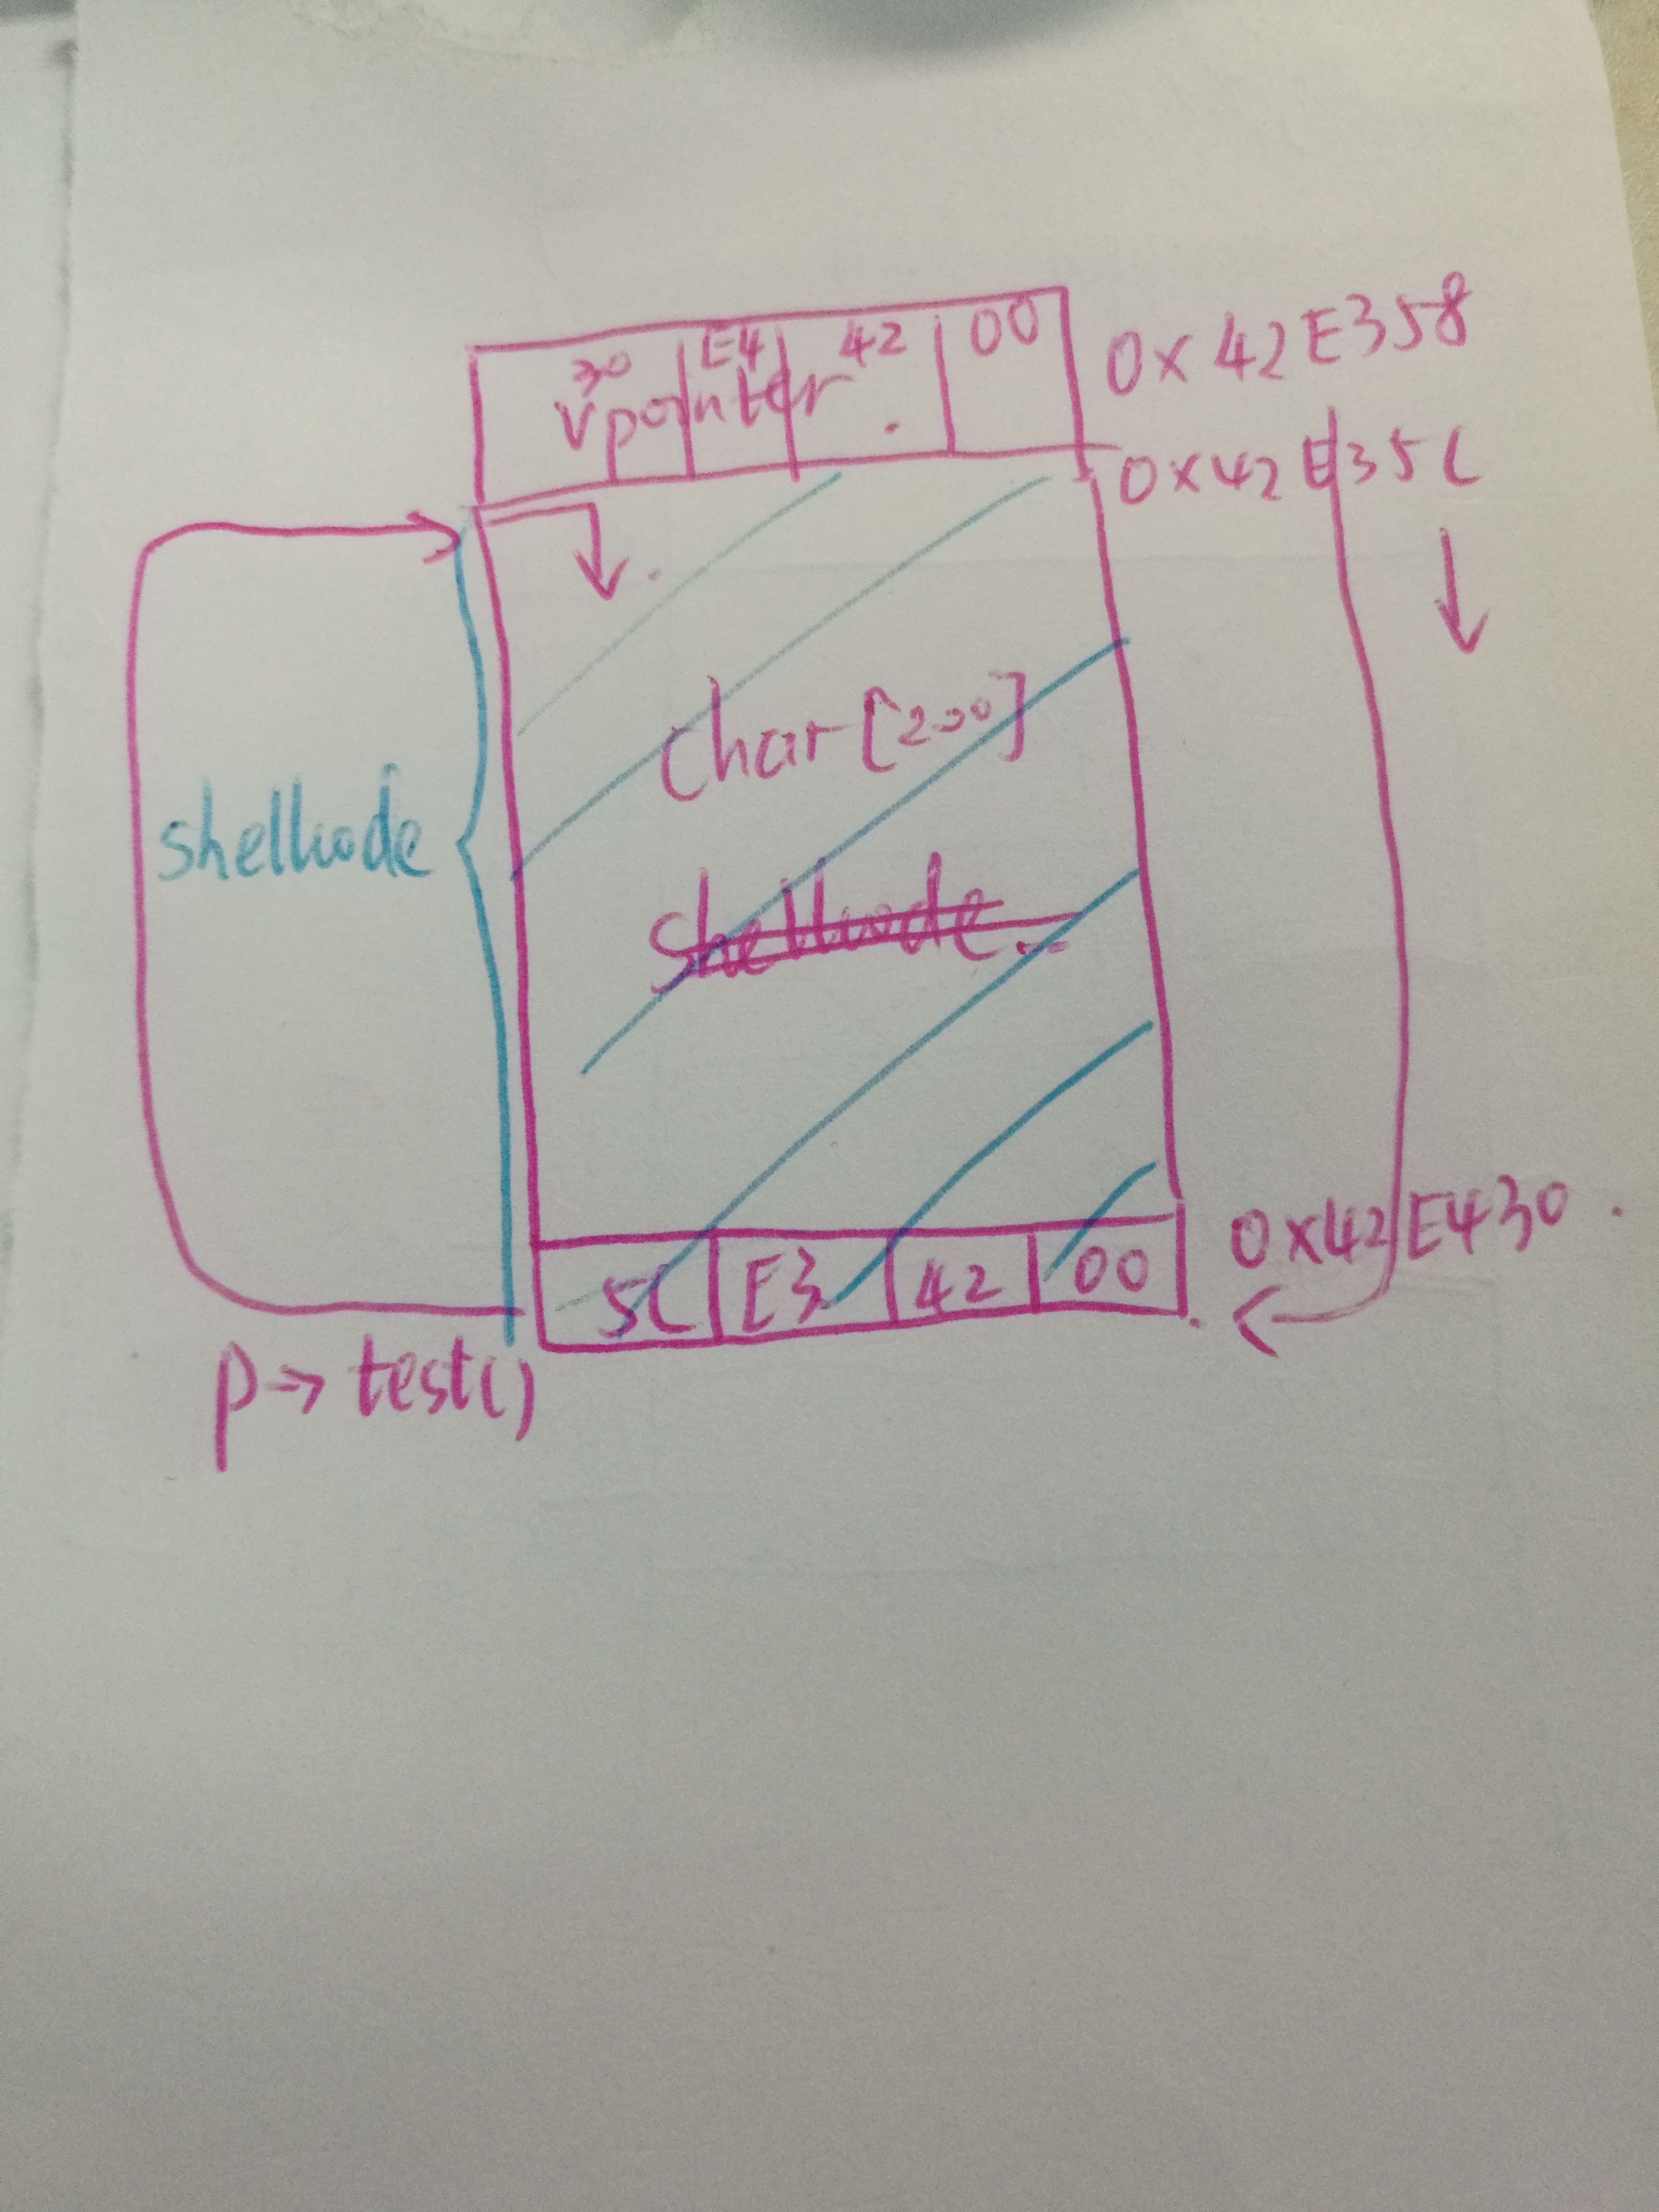 30 E4 42 00
Vpointer
0x42E358
0x42E35C
char[200]
shellcode
shellcode
5C E3 42 00
0x42E430
p→test()